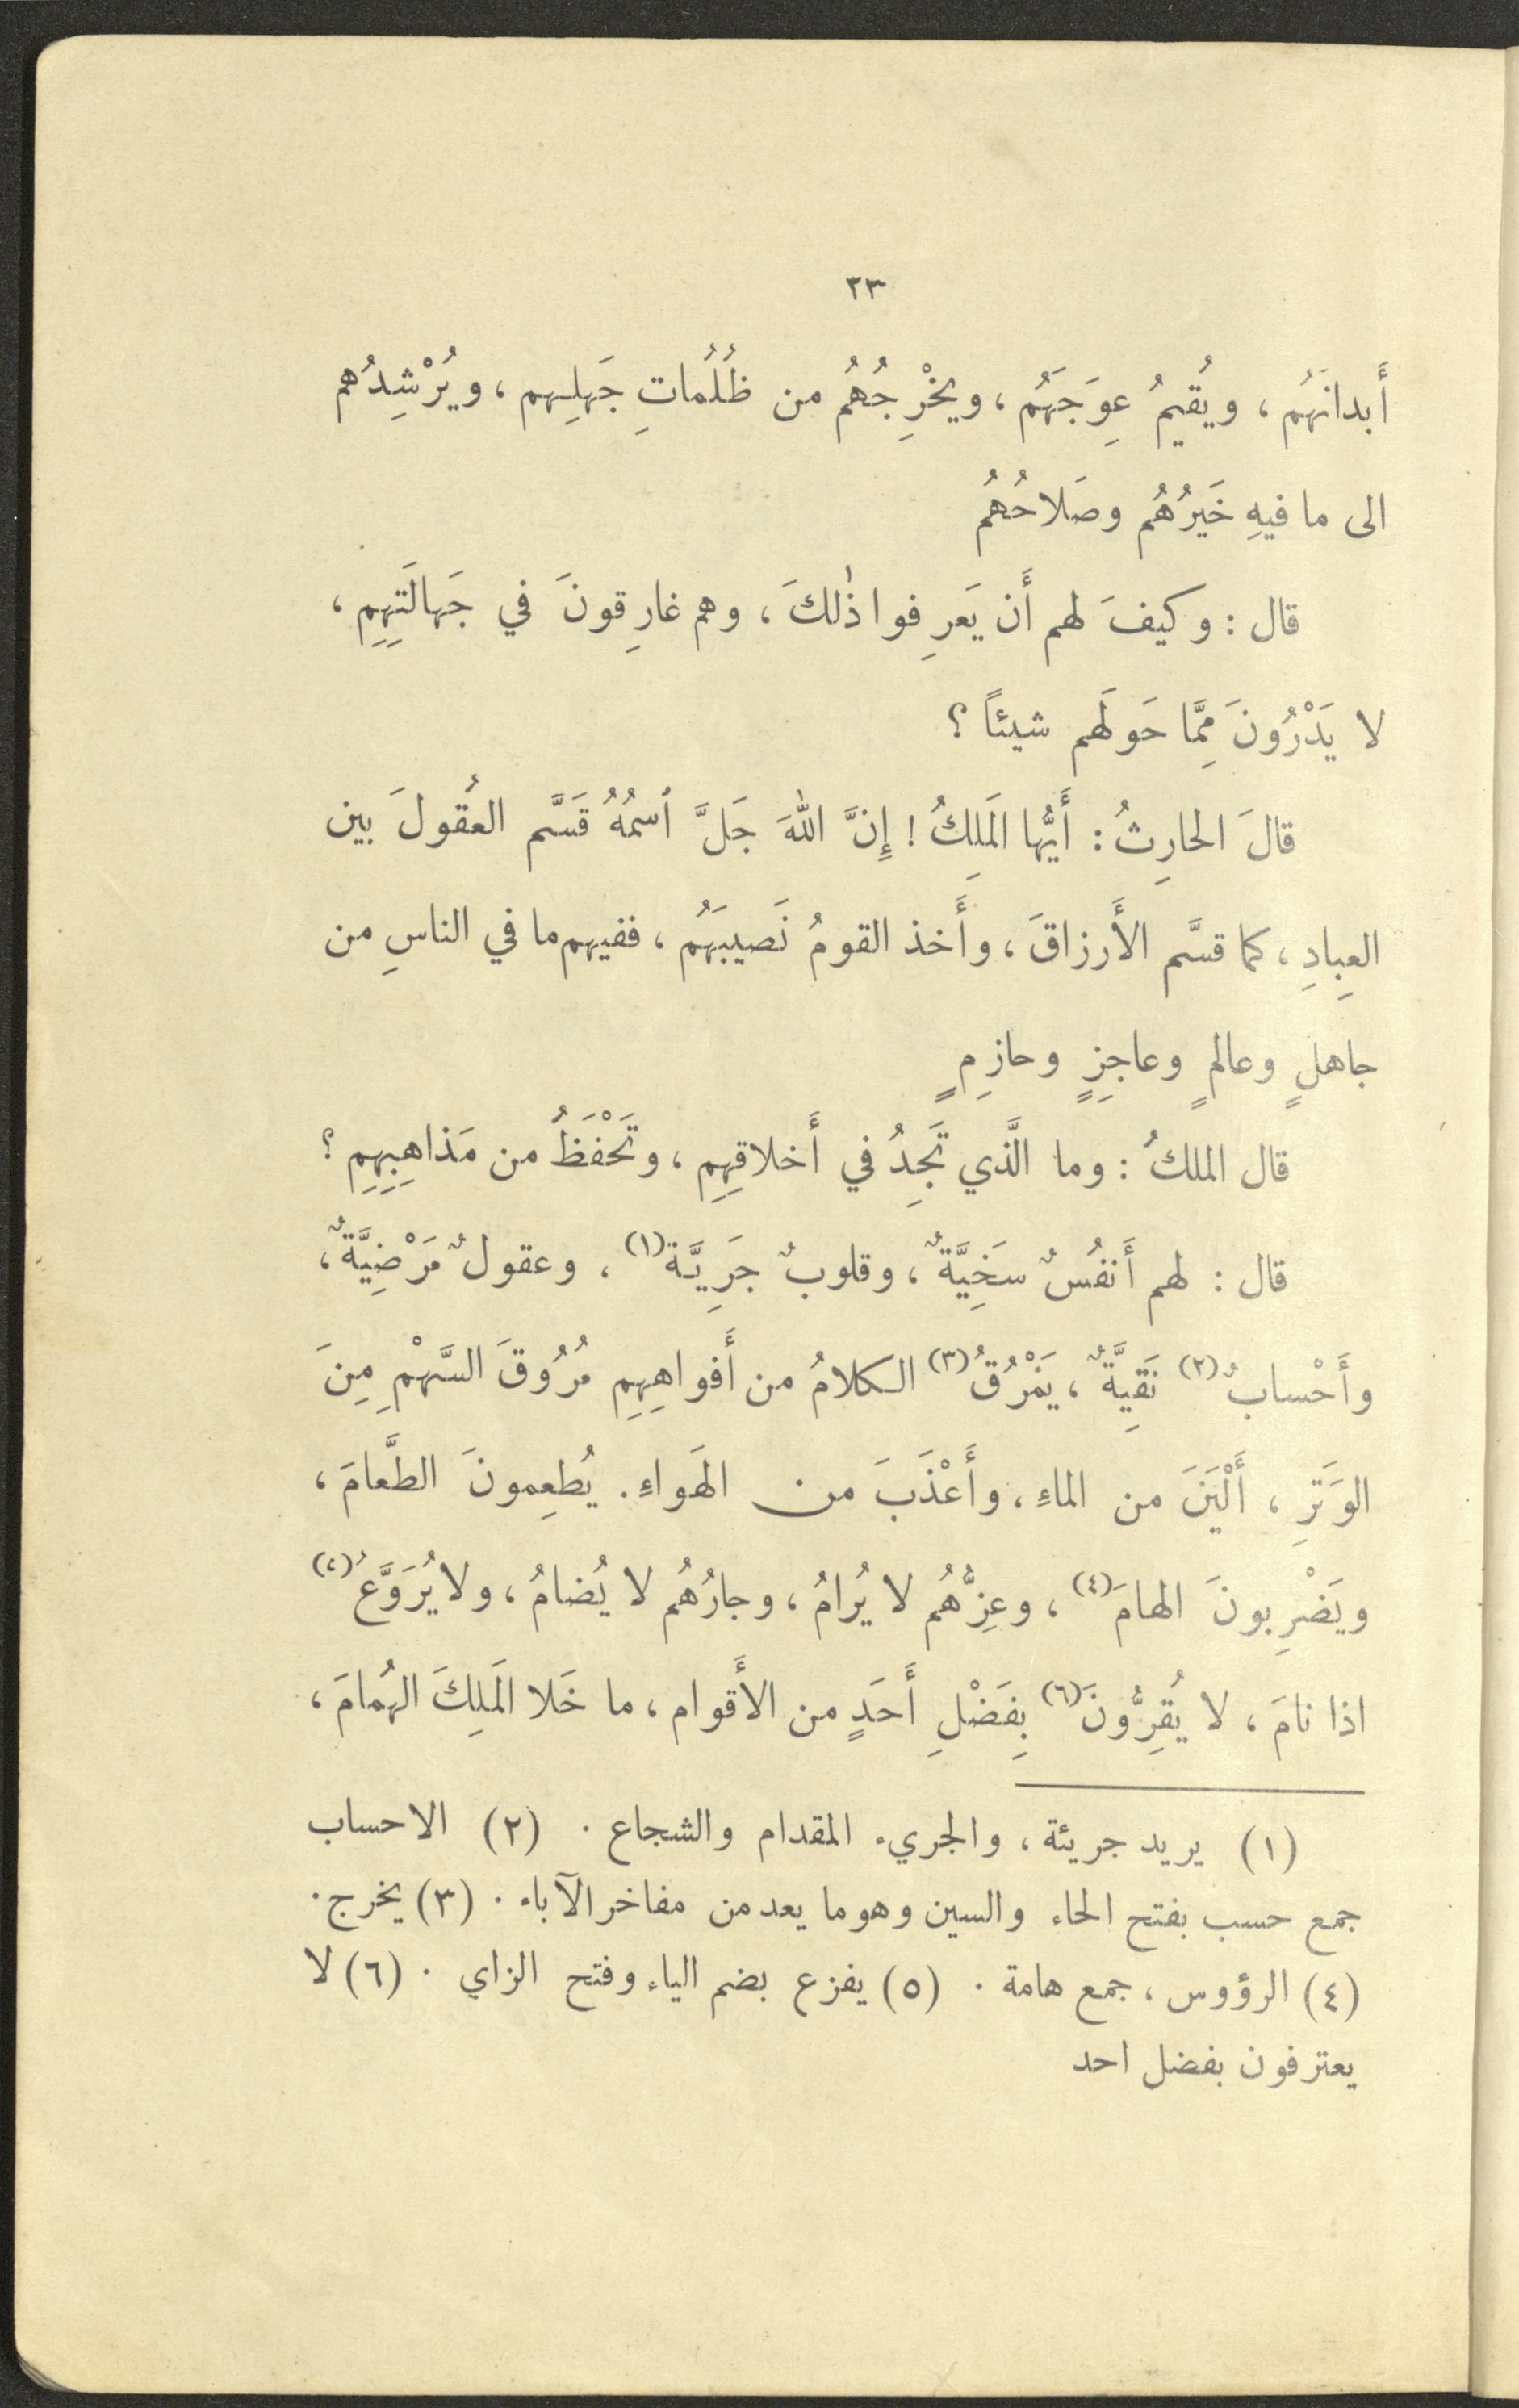 ٣٣
أَبدانَهُم ، ويُقيمُ عِوَجَهُم ، ويخْرِجُهُم من ظُلُماتِ جَهلِهِم ، ويُرْشِدُهم
الى ما فيهِ خَيرُهُم وصَلاحُهُم
قال : وكيفَ لهم أَن يَعرِفوا ذٰلكَ ، وهم غارِقونَ في جَهالَتِهِم ،
لا يَدْرُونَ مِمَّا حَولَهم شيئاً ؟
قالَ الحارِثُ : أَيُّها المَلِكُ ! إِنَّ اللهَ جَلَّ ٱسمُهُ قَسَّم العُقولَ بين
العِبادِ ، كما قسَّم الأَرزاقَ ، وأَخذ القومُ نَصيبَهُم ، ففيهم ما في الناسِ من
جاهلٍ وعالمٍ وعاجِزٍ وحازِمٍ
قال الملكُ : وما الَّذي تَجِدُ في أَخلاقِهِم ، وتَحْفَظُ من مَذاهِبِهِم ؟
قال : لهم أَنفُسٌ سَخِيَّةٌ ، وقلوبٌ جَرِيَّة(١) ، وعقولٌ مَرْضِيَّةٌ ،
وأَحْسابٌ(٢) نَقِيَّةٌ ، يَمْرُقُ(٣) الكلامُ من أَفواهِهِم مُرُوقَ السَّهْمِ مِنَ
الوَتَرِ ، أَلْيَنَ من الماءِ ، وأَعْذَبَ من الهَواءِ . يُطعِمونَ الطَّعامَ ،
ويَضْرِبونَ الهامَ(٤) ، وعِزُّهُم لا يُرامُ ، وجارُهُم لا يُضامُ ، ولا يُرَوَّعُ(٤)
اذا نامَ ، لا يُقِرُّونَ(٦) بِفَضْلِ أَحَدٍ من الأَقوام ، ما خَلا المَلِكَ الهُمامَ ،
(١) يريد جريئة ، والجريء المقدام والشجاع . (٢) الاحساب
جمع حسب بفتح الحاء والسين وهو ما يعد من مفاخر الآباء . (٣) يخرج .
(٤) الرؤوس ، جمع هامة . (٥) يفزع بضم الياء وفتح الزاي . (٦) لا
يعترفون بفضل احد